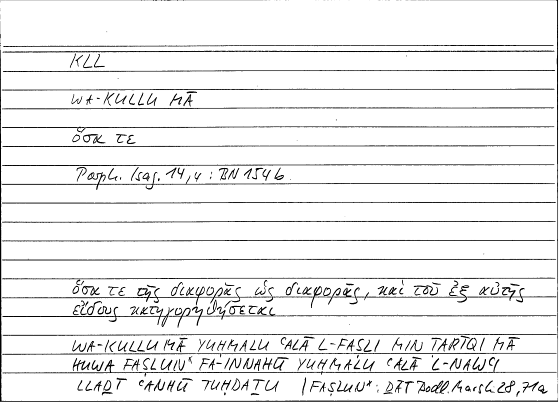 KLL
WA-KULLU MĀ
ὅσα τε
Porph. Isag. 14,4 : BN 154b.
ὅσα τε τῆς διαφορᾶς ὡς διαφορᾶς, καὶ τοῦ ἐξ αὐτῆς
εἴδους κατηγορηθήσεται
WA-KULLU MĀ YUḤMALU ʿALĀ L-FAṢLI MIN ṬARĪQI MĀ
HUWA FAṢLUN* FA-INNAHŪ YUḤMALU ʿALĀ ʾL-NAWʿI
LLAḎĪ ʿANHŪ TUḤDAṮU | FAṢLUN* : ḎĀT Bodl. Marsh. 28, 71a